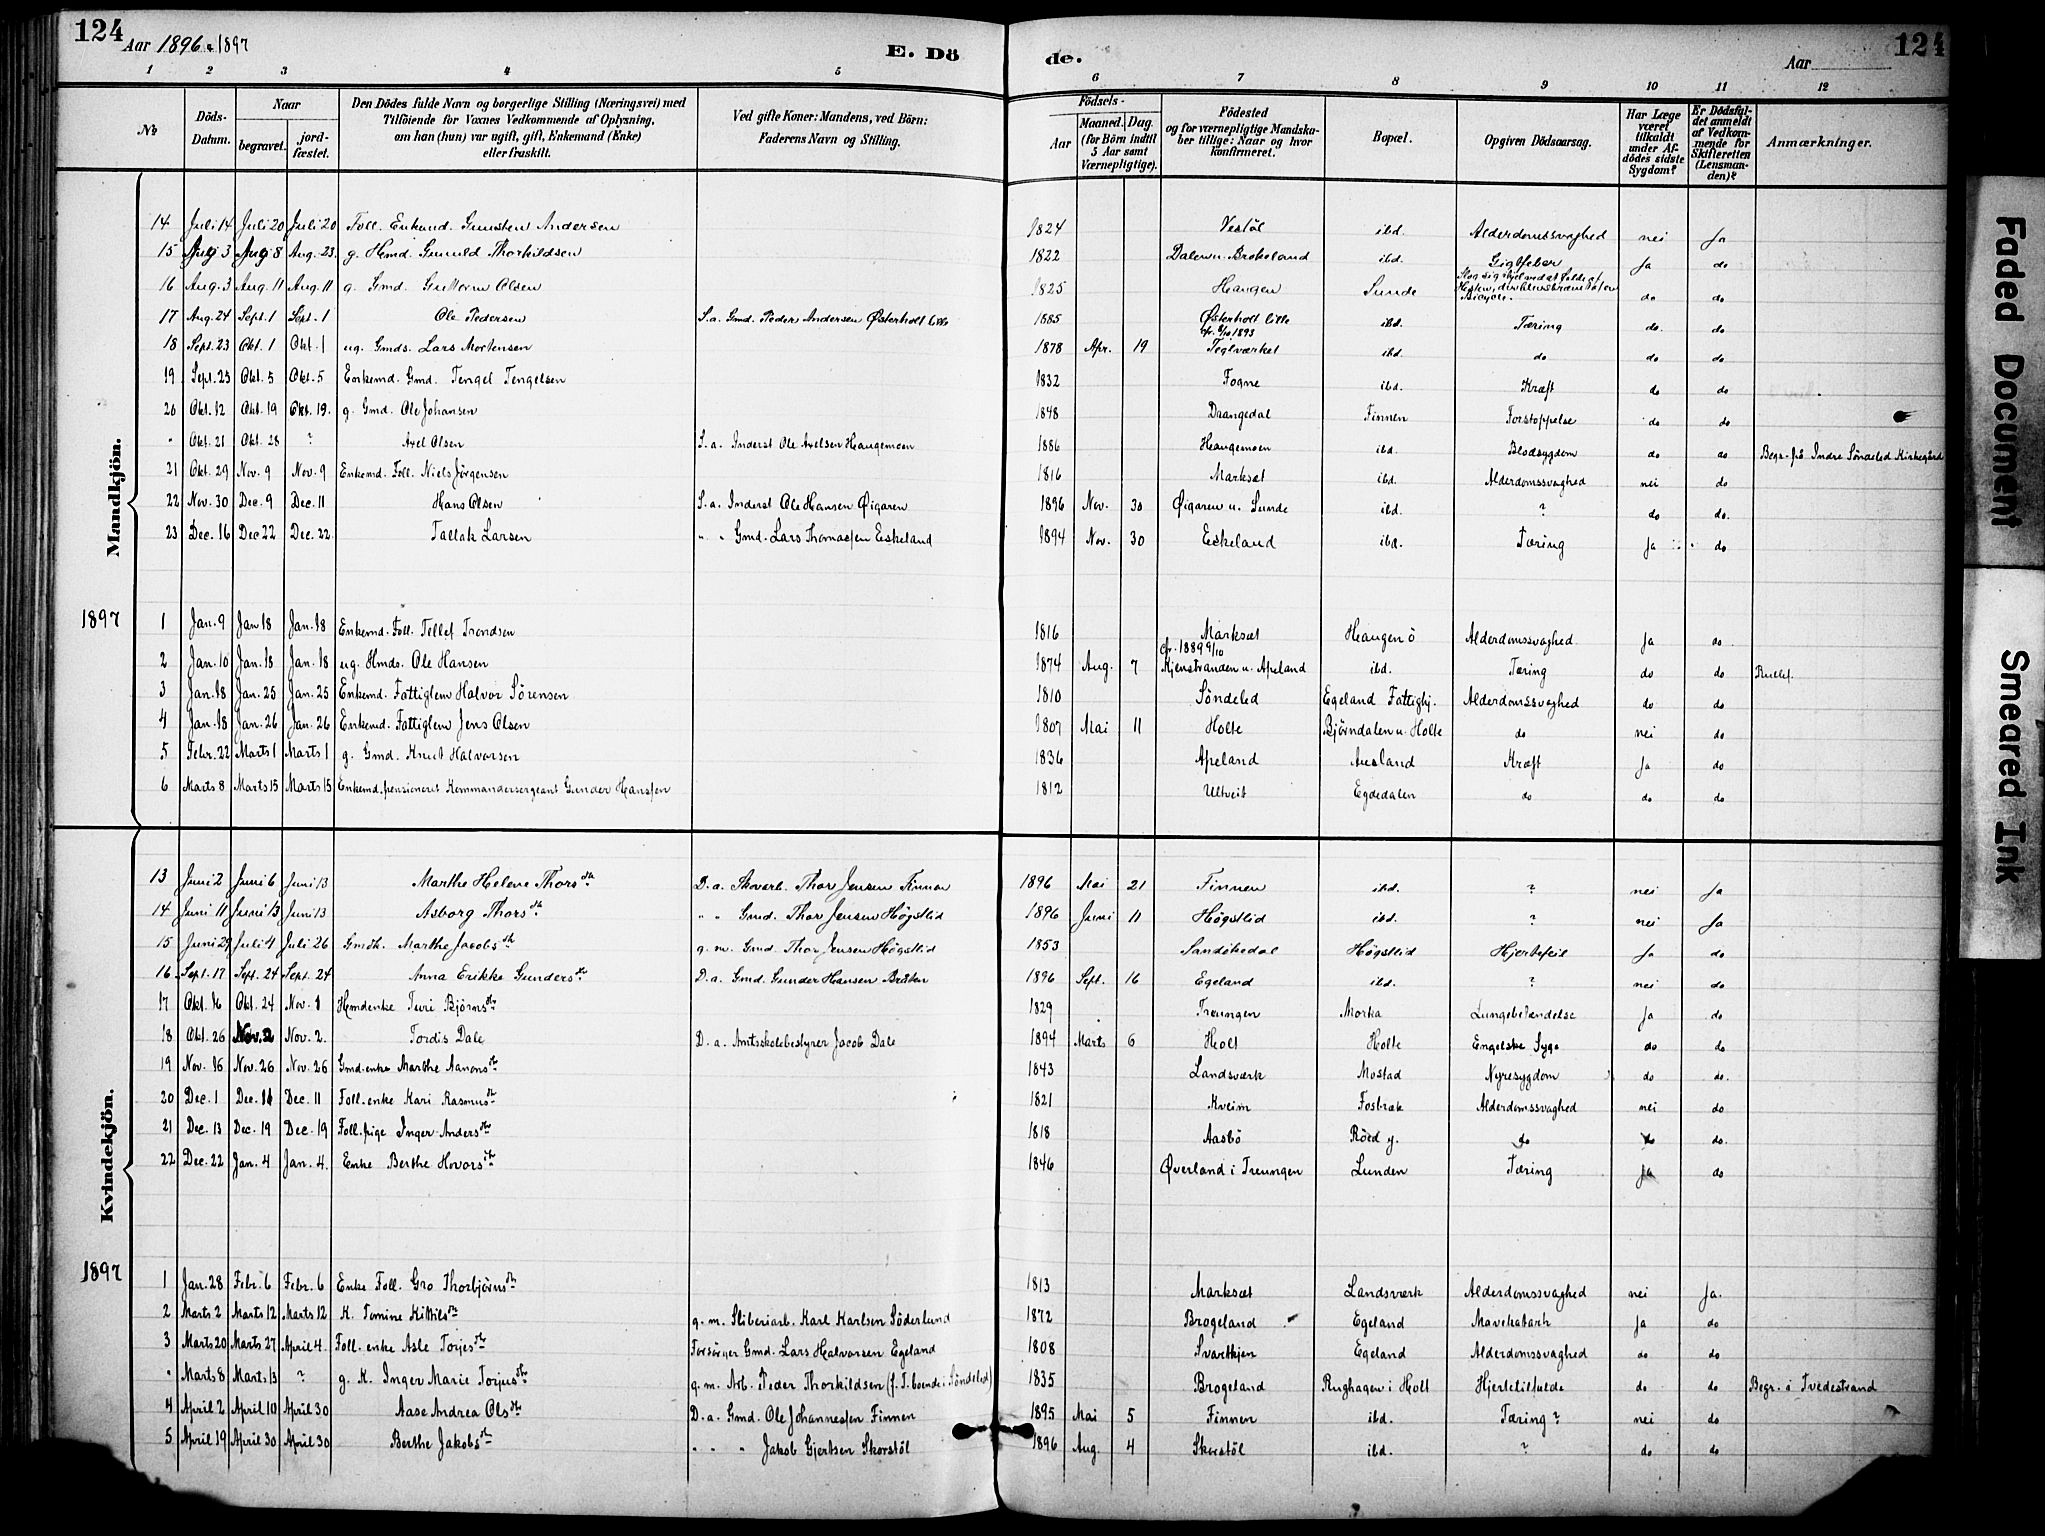 124 Aar 1896 & 1897 E. Dö
de. Aar 124
1 2 3 4 5 6 7 8 9 10 11 12
№ Döds-Datum. Naar begravet. jord-fæstet. Den Dödes fulde Navn og borgerlige Stilling (Næringsvei) med Tilföiende for Voxnes Vedkommende af Oplysning, om han (hun) var ugift, gift, Enkemand (Enke) eller fraskilt. Ved gifte Koner: Mandens, ved Börn: Faderens Navn og Stilling. Födsels- Aar Maaned. Dag. (for Börn indtil 5 Aar samt Værnepligtige). Födested og for værnepligtige Mandskaber tillige: Naar og hvor konfirmeret. Bopæl. Opgiven Dödsaarsag. Har Læge været tilkaldt under Afdödes sidste Sygdom? Er Dödsfaldet anmeldt af Vedkommende for Skifteretten (Lensmanden)? Anmærkninger.
Mandkjön.
14 Juli 14 Juli 20 Juli 20 Foll. Enkemd. Gunsten Andersen 1824 Vestøl ibd. Alderdomssvaghed nei Ja
15 Aug 3 Aug 8 Aug. 23. g. Hmd. Gunuld Thorkildsen 1822 Dalen u. Brokeland ibd. Gigtfeber Ja do
16 Aug. 3 Aug. 11 Aug. 11 g. Gmd. Guttorm Olsen 1825 Haugen Sunde Slog sig ihjel ved at falde af Hesten, der blev skræmt af en Bicycle. do do
17 Aug. 24 Sept. 1 Sept. 1 Ole Pedersen S.a. Gmd. Peder Andersen Østerholt lille 1885 Østerholt lille ibd. Tæring do. do
18 Sept. 23 Okt. 1 Okt. 1 ug. Gmds. Lars Mortensen 1878 Apr. 19 cfr. 8/10 1893 Teglværket ibd. do do do
19 Sept. 25 Okt. 5 Okt. 5 Enkemd. Gmd. Tengel Tengelsen 1832 Fogne ibd. Kræft do do
20 Okt. 12 Okt. 19 Okt. 19. g. Gmd. Ole Johansen 1848 Drangedal Finnen Forstoppelse do do
" Okt. 21 Okt. 28 ? Axel Olsen S.a. Inderst Ole Axelsen Haugemoen 1886 Haugemoen ibd. Blodsygdom do do Begr. på Indre Söndeled Kirkegård
21 Okt. 29 Nov. 9 Nov. 9 Enkemd. Foll. Niels Jörgensen 1816 Marksæt ibd. Alderdomssvaghed nei do
22 Nov. 30 Dec. 9 Dec. 11 Hans Olsen S.a. Inderst Ole Hansen Øigaren 1896 Nov. 30 Øigaren u. Sunde ibd. ? do do.
23 Dec. 16 Dec 22 Dec. 22. Tallak Larsen " " Gmd. Lars Thomassen Eskeland 1894 Nov. 30 Eskeland ibd. Tæring Ja do
1897
1 Jan. 9 Jan 18 Jan. 18 Enkemd. Foll. Tellef Trondsen 1816 Marksæt Haugen ö Alderdomssvaghed Ja do
2 Jan. 10 Jan. 18 Jan. 18 ug. Hmds. Ole Hansen 1874 Aug. 7 cfr. 1889 6/10 Kjenstranden u. Apeland ibd. Tæring do do
3 Jan. 18 Jan. 25 Jan. 25 Enkemd. Fattiglem Halvor Sörensen 1810 Söndeled Egeland Fattighj. Alderdomssvaghed do do
4 Jan. 18 Jan. 26 Jan. 26 Enkemd. Fattiglem Jens Olsen 1807 Mai 11 Holte Björndalen u. Holte do nei do
5 Febr. 22 Marts 1 Marts 1 g. Gmd. Knut Halvorsen 1836 Apeland Ausland Kræft Ja do
6 Marts 8 Marts 15 Marts 15 Enkemd. pensioneret Kommandersergeant Gunder Hanssen 1812 Ulltveit Egdedalen do do do
Kvindekjön.
13 Juni 2 Juni 6 Juni 13 Marthe Helene Thorsdtr D.a. Skovarb. Thor Jensen Finnen 1896 Mai 21 Finnen ibd. ? nei Ja
14 Juni 11 Juni 13 Juni 13 Asborg Thorsdtr " " Gmd. Thor Jensen Høgstlid 1896 Juni 11 Høgstlid ibd. ? nei Ja
15 Juni 29 Juli 4 Juli 26 Gmdk. Marthe Jacobsdtr g.m. Gmd. Thor Jensen Høgstlid 1853 Sandökedal Høgstlid Hjertefeil Ja do
16 Sept. 17 Sept. 24 Sept. 24 Anna Erikke Gundersdtr D.a. Gmd. Gunder Hansen Bråten 1896 Sept. 16 Egeland ibd. ? nei do
17 Okt. 16 Okt. 24 Nov. 1 Hmdenke Turi Björnsdtr 1829 Treungen Morka Lungebetændelse Ja do
18 Okt. 26 Nov. 2 Nov. 2. Tordis Dale D.a. Amtsskolebestyrer Jacob Dale 1894 Marts 6 Holt Holte Engelske Syge do do
19 Nov. 16 Nov. 26 Nov. 26 Gmd.enke Marthe Aanonsdtr 1843 Landsværk Mostad Nyresygdom do do.
20 Dec. 1 Dec. 11 Dec. 11 Foll.enke Kari Rasmusdtr 1821 Kveim Fosbræk Alderdomssvaghed nei do
21 Dec. 13 Dec. 19 Dec. 19 Foll.pige Inger Andersdtr 1818 Aasbö Röed y. do do do.
22 Dec. 22 Jan. 4 Jan. 4. Enke Berthe Hovorsdtr 1846 Øverland i Treungen Lunden Tæring Ja do
1897
1 Jan. 28 Febr. 6 Febr. 6 Enke Foll. Gro Thorbjörnsdtr 1813 Marksæt Landsværk Alderdomssvaghed nei Ja.
2 Marts 2 Marts 12 Marts 12 K. Tomine Kittilsdtr g.m. Sliberiarb. Karl Karlsen Söderlund 1872 Brogeland Egeland Mavekatarh Ja do
3 Marts 20 Marts 27 April 4. Foll. enke Asle Torjesdtr Forsörger Gmd. Lars Halvorsen Egeland 1808 Svartkjen Egeland Alderdomssvaghed do do
" Marts 8 Marts 13 ? g. K. Inger Marie Torjusdtr g.m. Arb. Peder Thorkildsen (f. T. boende i Söndeled) 1835 Brogeland Rughagen i Holt Hjertetilfælde do do Begr. i Tvedestrand
4 April 2 April 10 April 30 Aase Andrea Olsdtr D.a. Gmd. Ole Johannessen Finnen 1895 Mai 5 Finnen ibd. Tæring ? nei do
5 April 19 April 30 April 30 Berthe Jakobsdtr " " " Jakob Gjertsen Skorstöl 1896 Aug. 4 Skorstöl ibd. ? do do
Faded Document
Smeared Ink